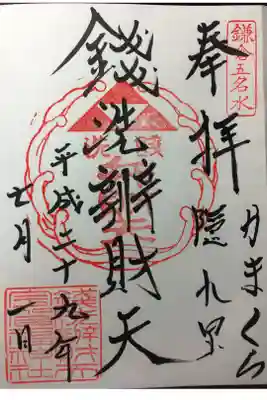 鎌倉五名水
奉拝
かまくら
隠れ里
錢洗辨財天
平成二十九年
七月一日